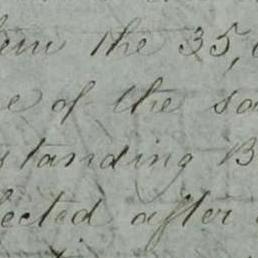 em the 35,
e of the sa
standing B
lected after